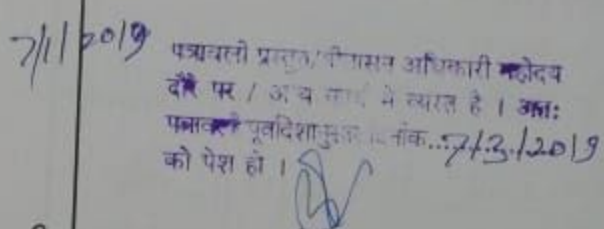 7/1/2019
पत्रावली प्रस्तुत/पीठासीन अधिकारी महोदय
दौरे पर / अन्य कार्य में व्यस्त है । अतः
पत्रावली पूर्वादेशानुसार दिनांक...7/3/2019
को पेश हो ।